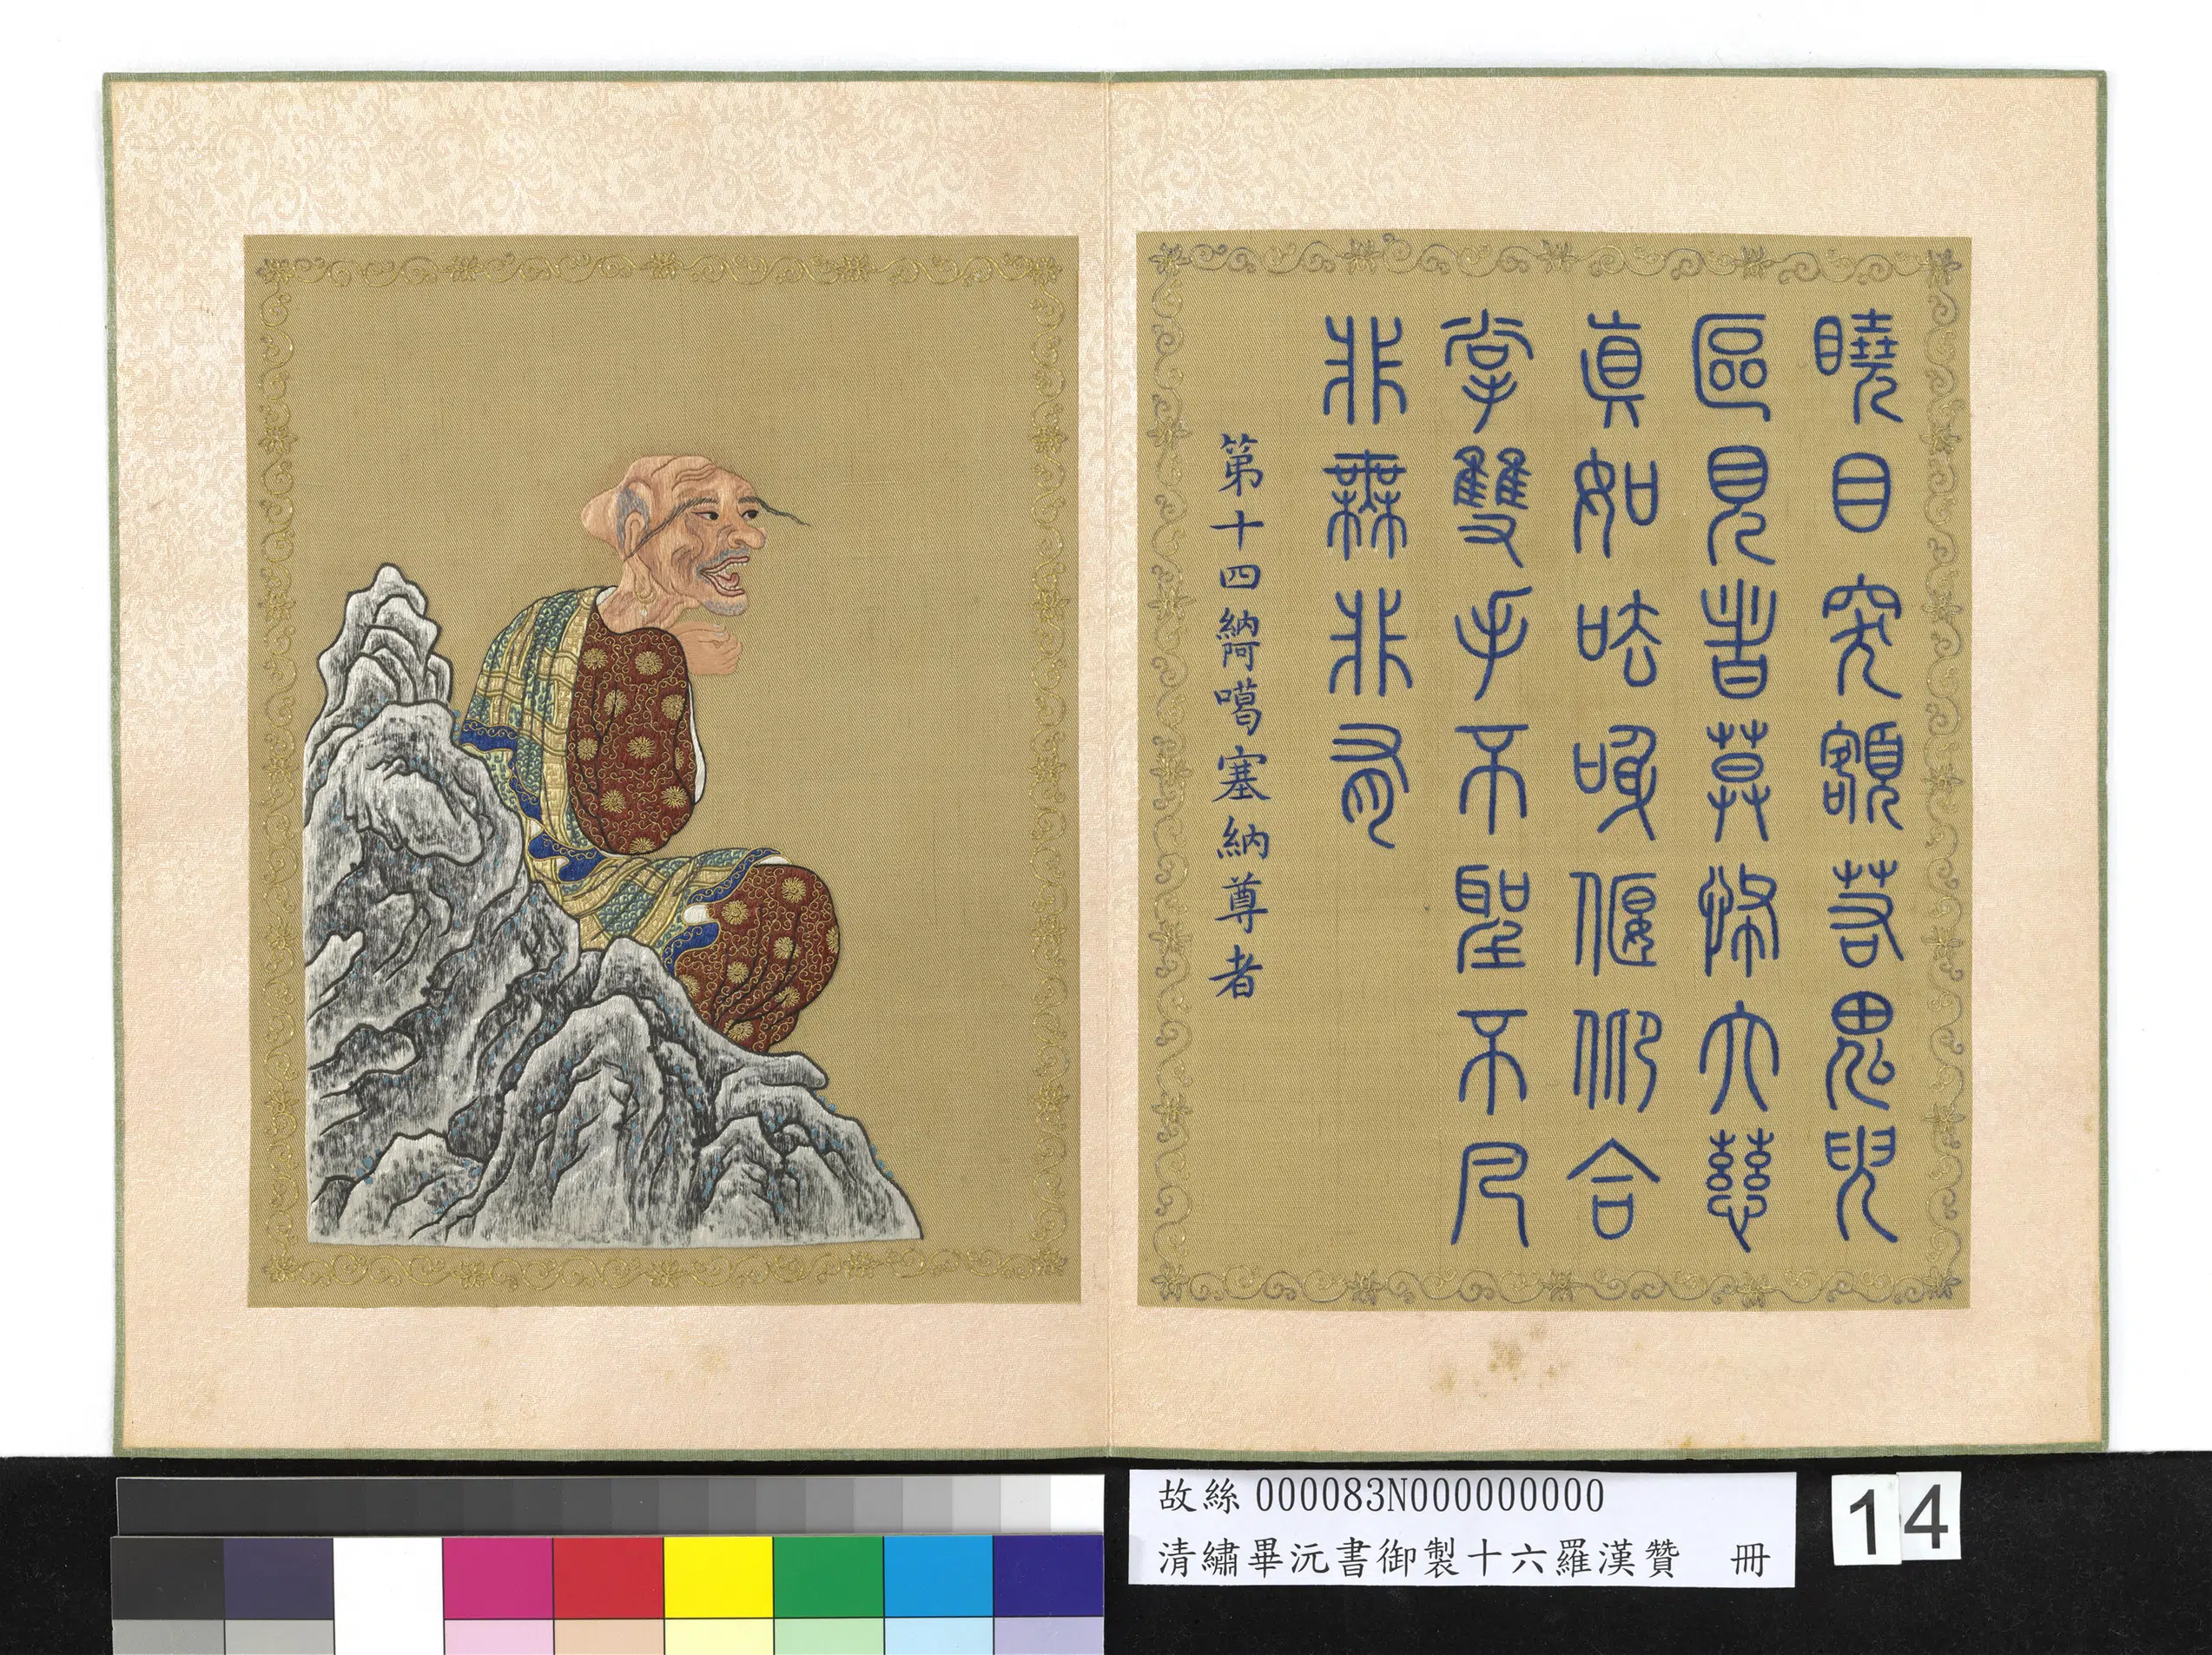 䁱目突額若鬼臾
區見者莫怖大慈
真如呿吸偃仰合
掌雙手不聖不凡
非無非有
第十四納阿噶塞納尊者
故絲000083N000000000
清繡畢沅書御製十六羅漢贊 冊
14